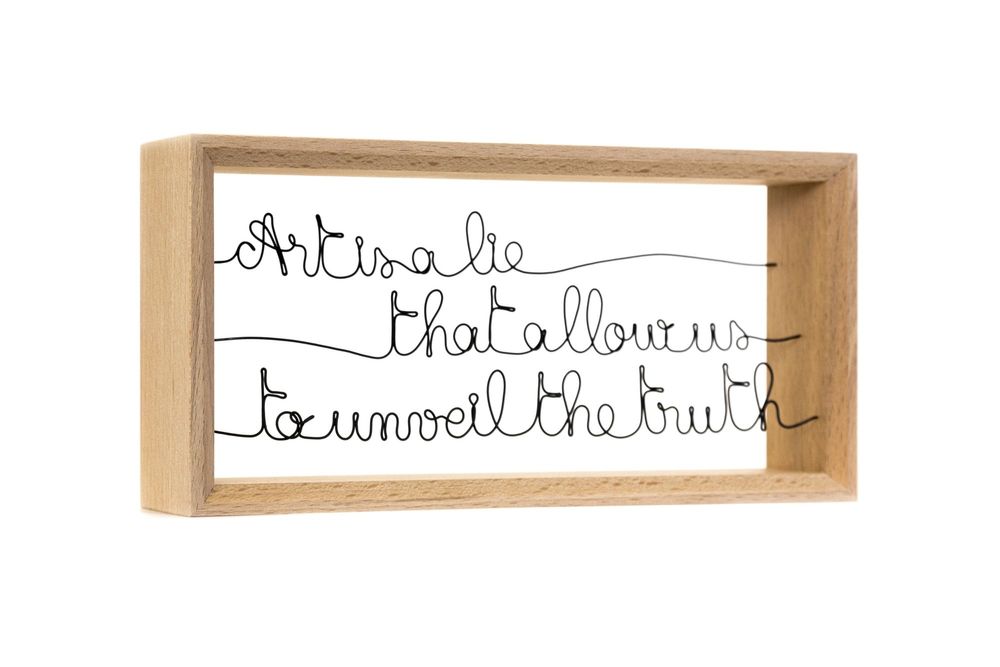 Art is a lie
that allow us
to unveil the truth